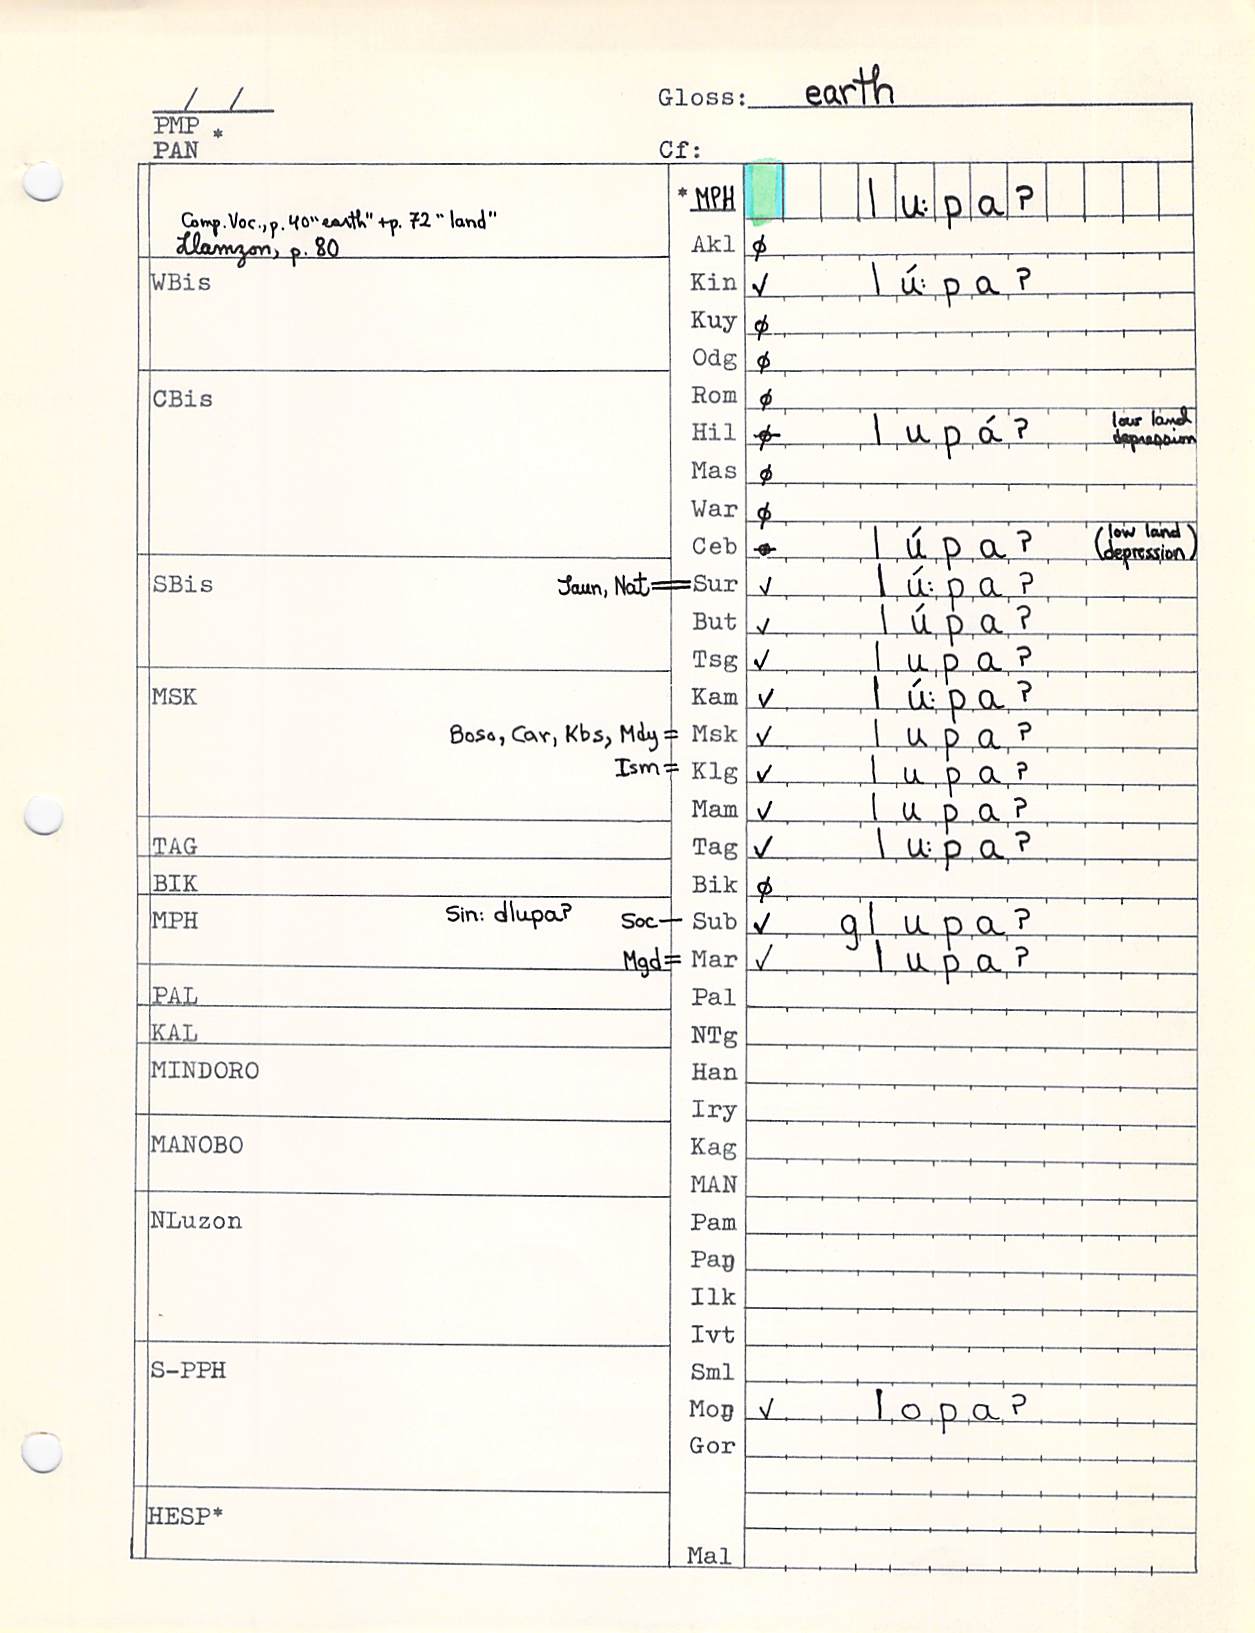 / /
Gloss: earth
PMP *
PAN
Cf:
*MPH lu:paʔ
Comp. Voc., p. 40 "earth" + p. 72 "land"
Llamzon, p. 80
Akl ∅
WBis
Kin ✓ lú:paʔ
Kuy ∅
Odg ∅
CBis
Rom ∅
Hil ∅ lupáʔ low land depression
Mas ∅
War ∅
Ceb lúpaʔ (low land depression)
SBis
Jaun, Nat = Sur ✓ lú:paʔ
But ✓ lúpaʔ
Tsg ✓ lupaʔ
MSK
Kam ✓ lú:paʔ
Boso, Car, Kbs, Mdy = Msk ✓ lupaʔ
Ism = Klg ✓ lupaʔ
Mam ✓ lupaʔ
TAG
Tag ✓ lu:paʔ
BIK
Bik ∅
MPH
Sin: dlupaʔ
Soc — Sub ✓ glupaʔ
Mgd = Mar ✓ lupaʔ
PAL
Pal
KAL
NTg
MINDORO
Han
Iry
MANOBO
Kag
MAN
NLuzon
Pam
Paŋ
Ilk
Ivt
S-PPH
Sml
Moŋ ✓ lopaʔ
Gor
HESP*
Mal